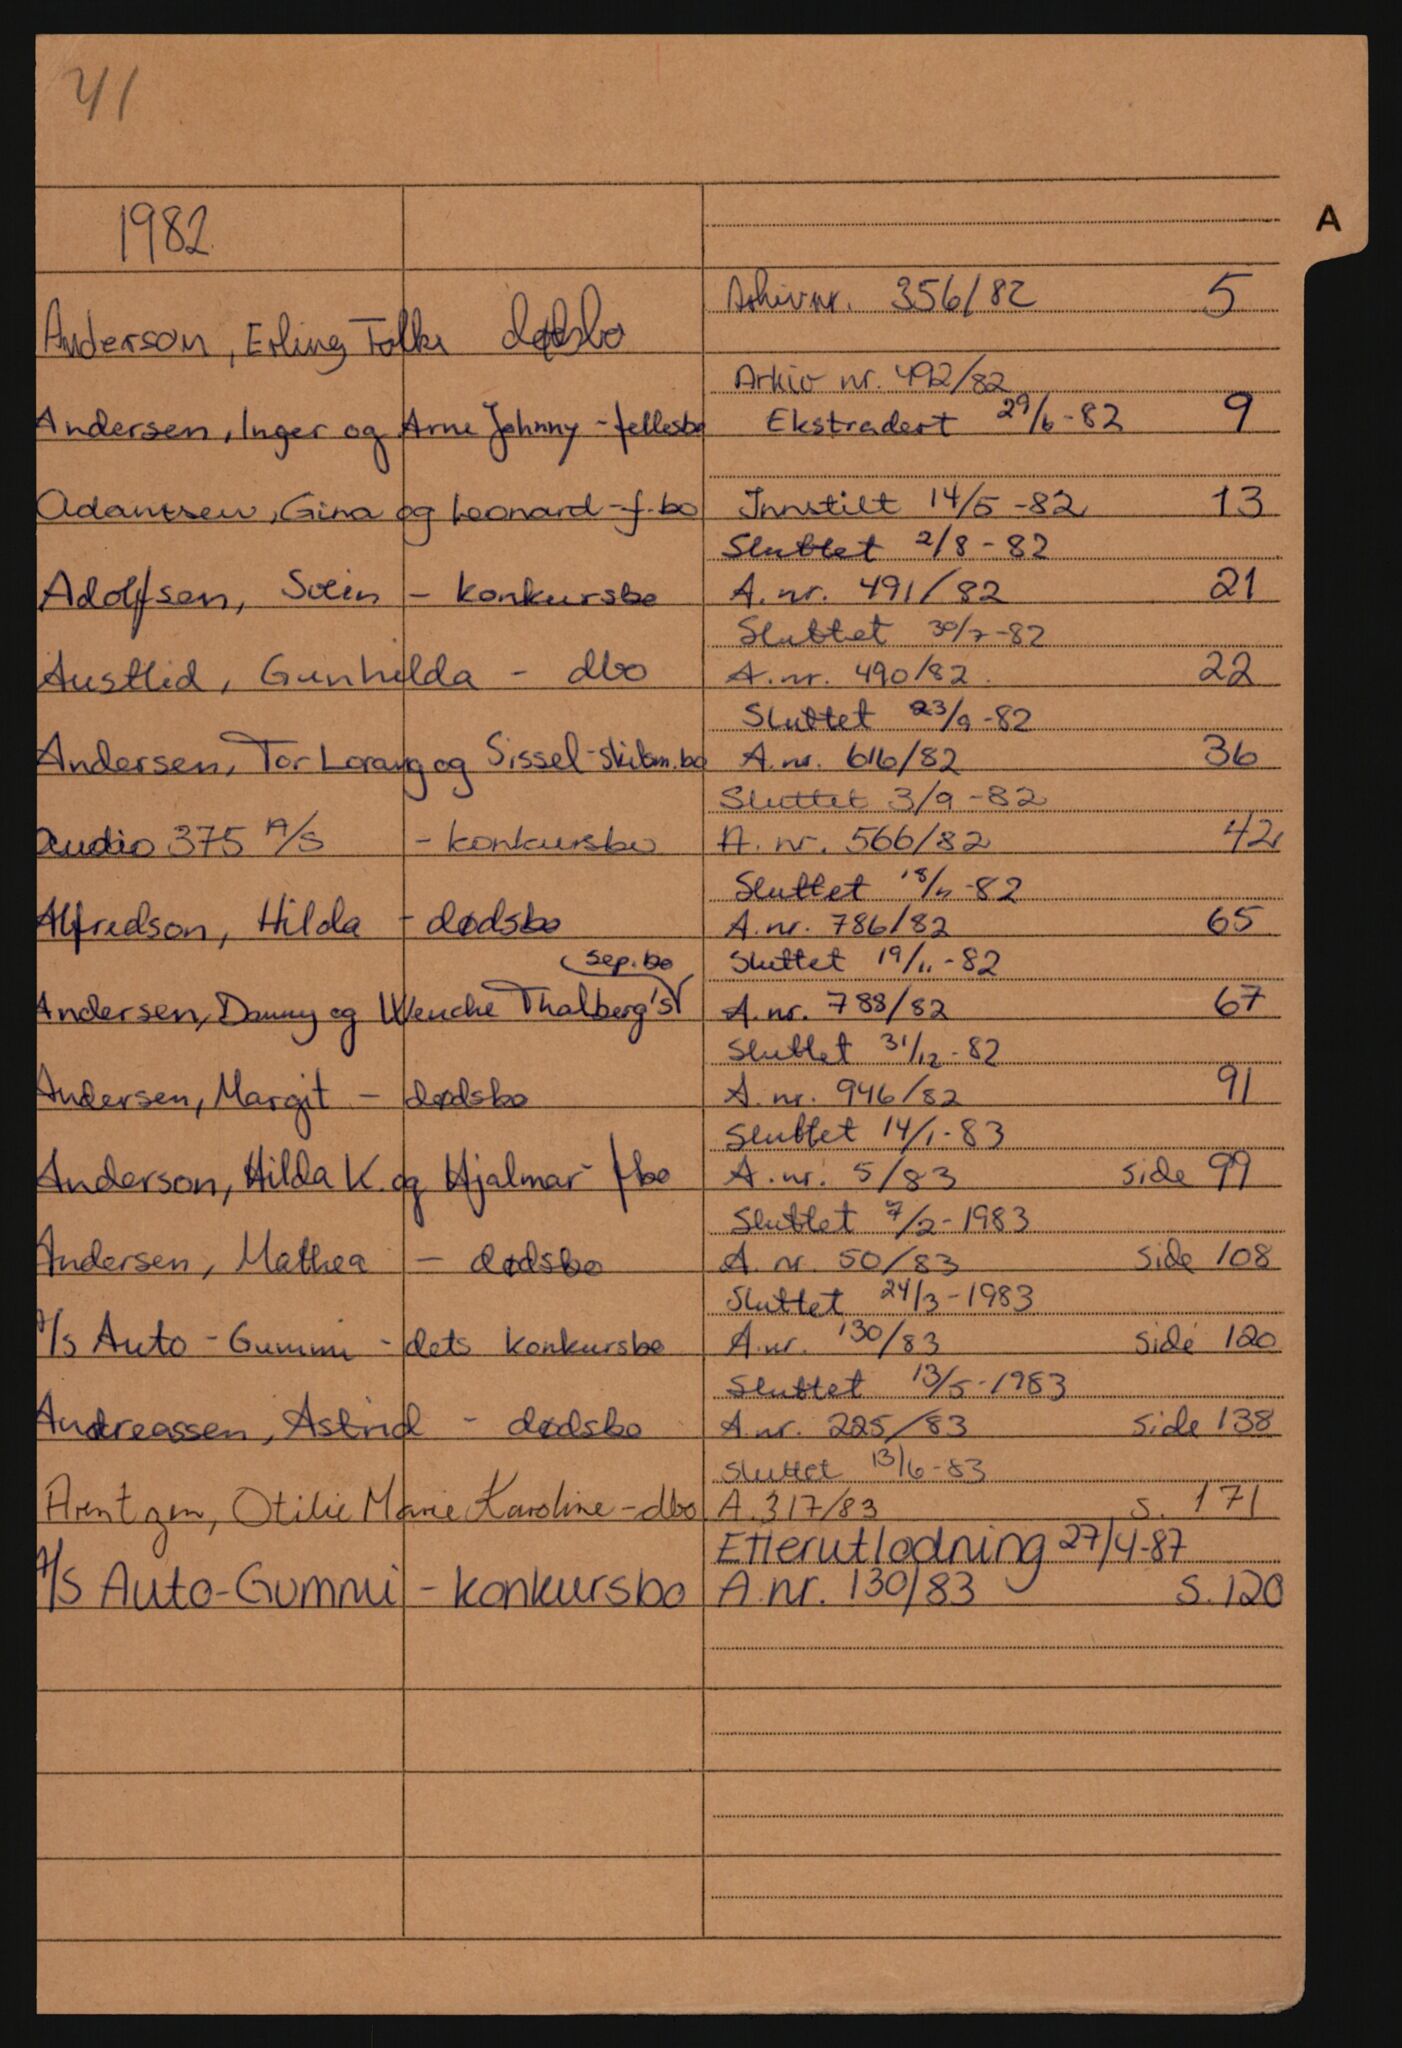 41
A
1982
Arkivnr. 356/82 5
Anderson, Erling Folke dødsbo
Arkiv nr. 492/82
Andersen, Inger og Arne Johnny - fellesbo Ekstradert 29/6-82 9
Adamsen, Gina og Leonard - f.bo Innstilt 14/5-82 13
Sluttet 2/8-82
Adolfsen, Svein - konkursbo A.nr. 491/82 21
Sluttet 30/7-82
Austlid, Gunhilda - dbo A.nr. 490/82 22
Sluttet 23/9-82
Andersen, Tor Lorang og Sissel - skilsm.bo A.nr. 616/82 36
Sluttet 3/9-82
Audio 375 A/S - konkursbo A.nr. 566/82 42
Sluttet 18/11-82
Alfredson, Hilda - dødsbo A.nr. 786/82 65
sep.bo Sluttet 19/11-82
Andersen, Danny og Wenche Thalberg's A.nr. 788/82 67
Sluttet 31/12-82
Andersen, Margit - dødsbo A.nr. 946/82 91
Sluttet 14/1-83
Anderson, Hilda K. og Hjalmar - fbo A.nr. 5/83 side 99
Sluttet 7/2-1983
Andersen, Mathea - dødsbo A.nr. 50/83 side 108
Sluttet 24/3-1983
A/S Auto-Gummi - dets konkursbo A.nr. 130/83 side 120
Sluttet 13/5-1983
Andreassen, Astrid - dødsbo A.nr. 225/83 side 138
Sluttet 13/6-83
Arntzen, Otilie Marie Karoline - dbo A.317/83 s. 171
Etterutlodning 27/4-87
A/S Auto-Gummi - konkursbo A.nr. 130/83 S.120